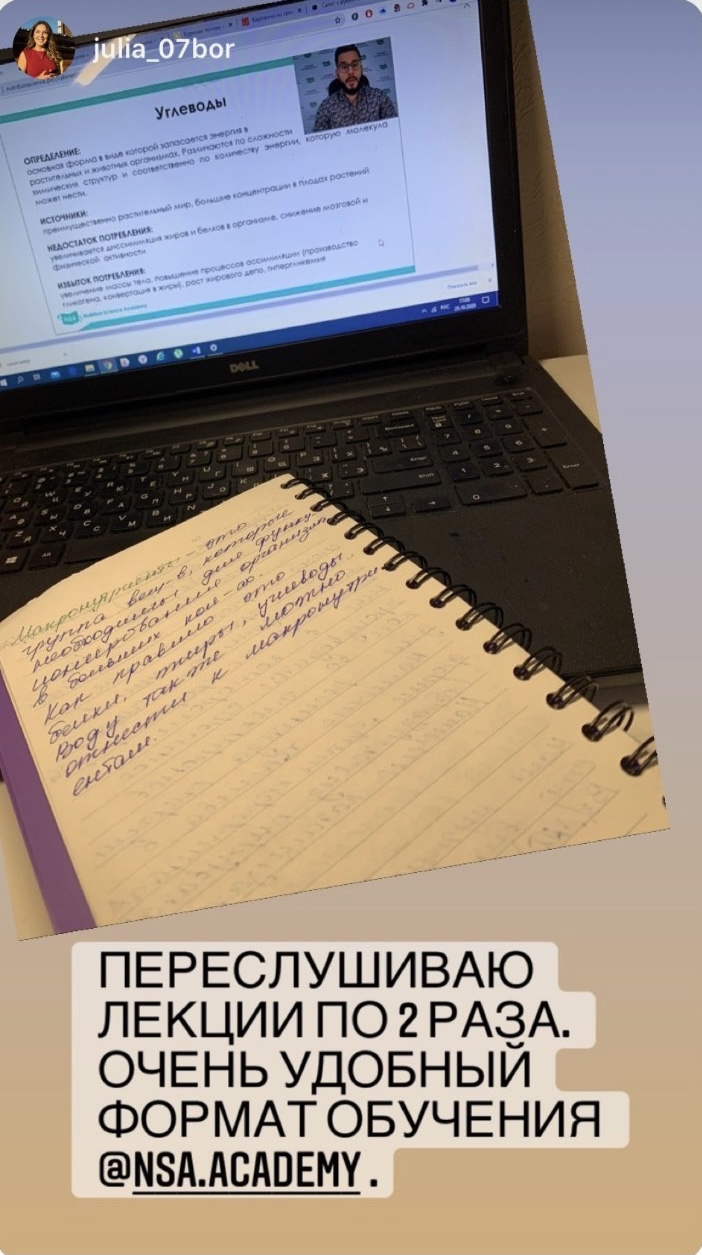 julia_07bor
Углеводы
ОПРЕДЕЛЕНИЕ:
основная форма в виде которой запасается энергия в
растительных и животных организмах. Различаются по сложности
химических структур и соответственно по количеству энергии, которую молекула
может нести.
ИСТОЧНИКИ:
преимущественно растительный мир, большие концентрации в плодах растений
НЕДОСТАТОК ПОТРЕБЛЕНИЯ:
увеличивается диссимиляция жиров и белков в организме, снижение мозговой и
физической активности
ИЗБЫТОК ПОТРЕБЛЕНИЯ:
увеличение массы тела, повышение процессов ассимиляции (производство
гликогена, конвертация в жиры), рост жирового депо, гипергликемия
NSA Nutrition Science Academy
Показать все
DELL
Макронутриенты - это
группа вещ-в, которые
необходимы для функци-
онирования организма
в больших кол-ах.
Как правило это
белки, жиры, углеводы.
Воду также можно
отнести к макронутри-
ентам.
ПЕРЕСЛУШИВАЮ
ЛЕКЦИИ ПО 2 РАЗА.
ОЧЕНЬ УДОБНЫЙ
ФОРМАТ ОБУЧЕНИЯ
@NSA.ACADEMY .